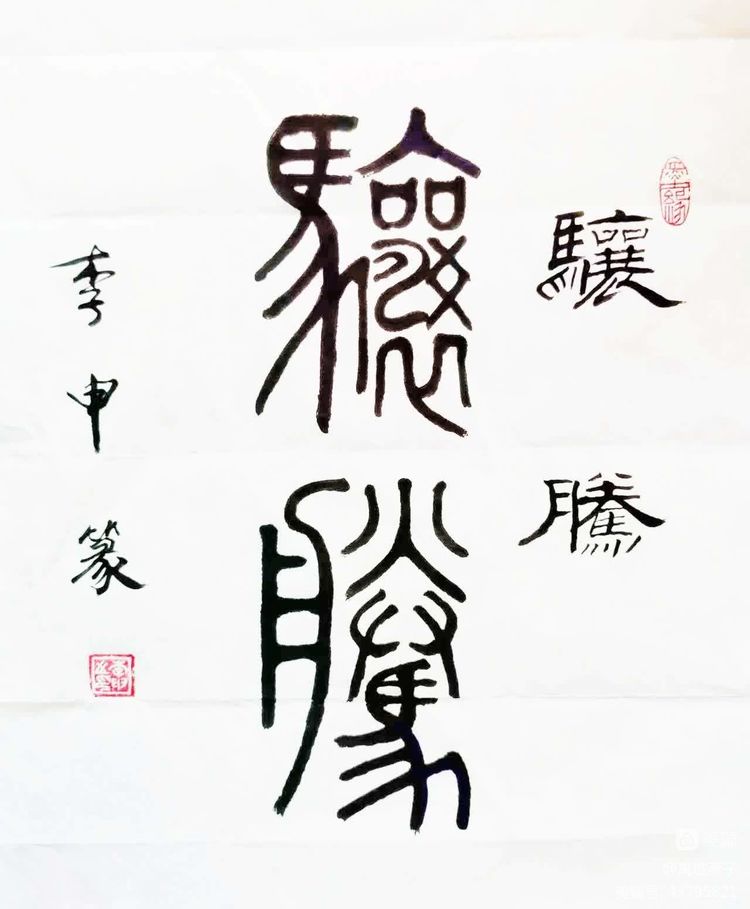 驤騰
驤騰
李申篆